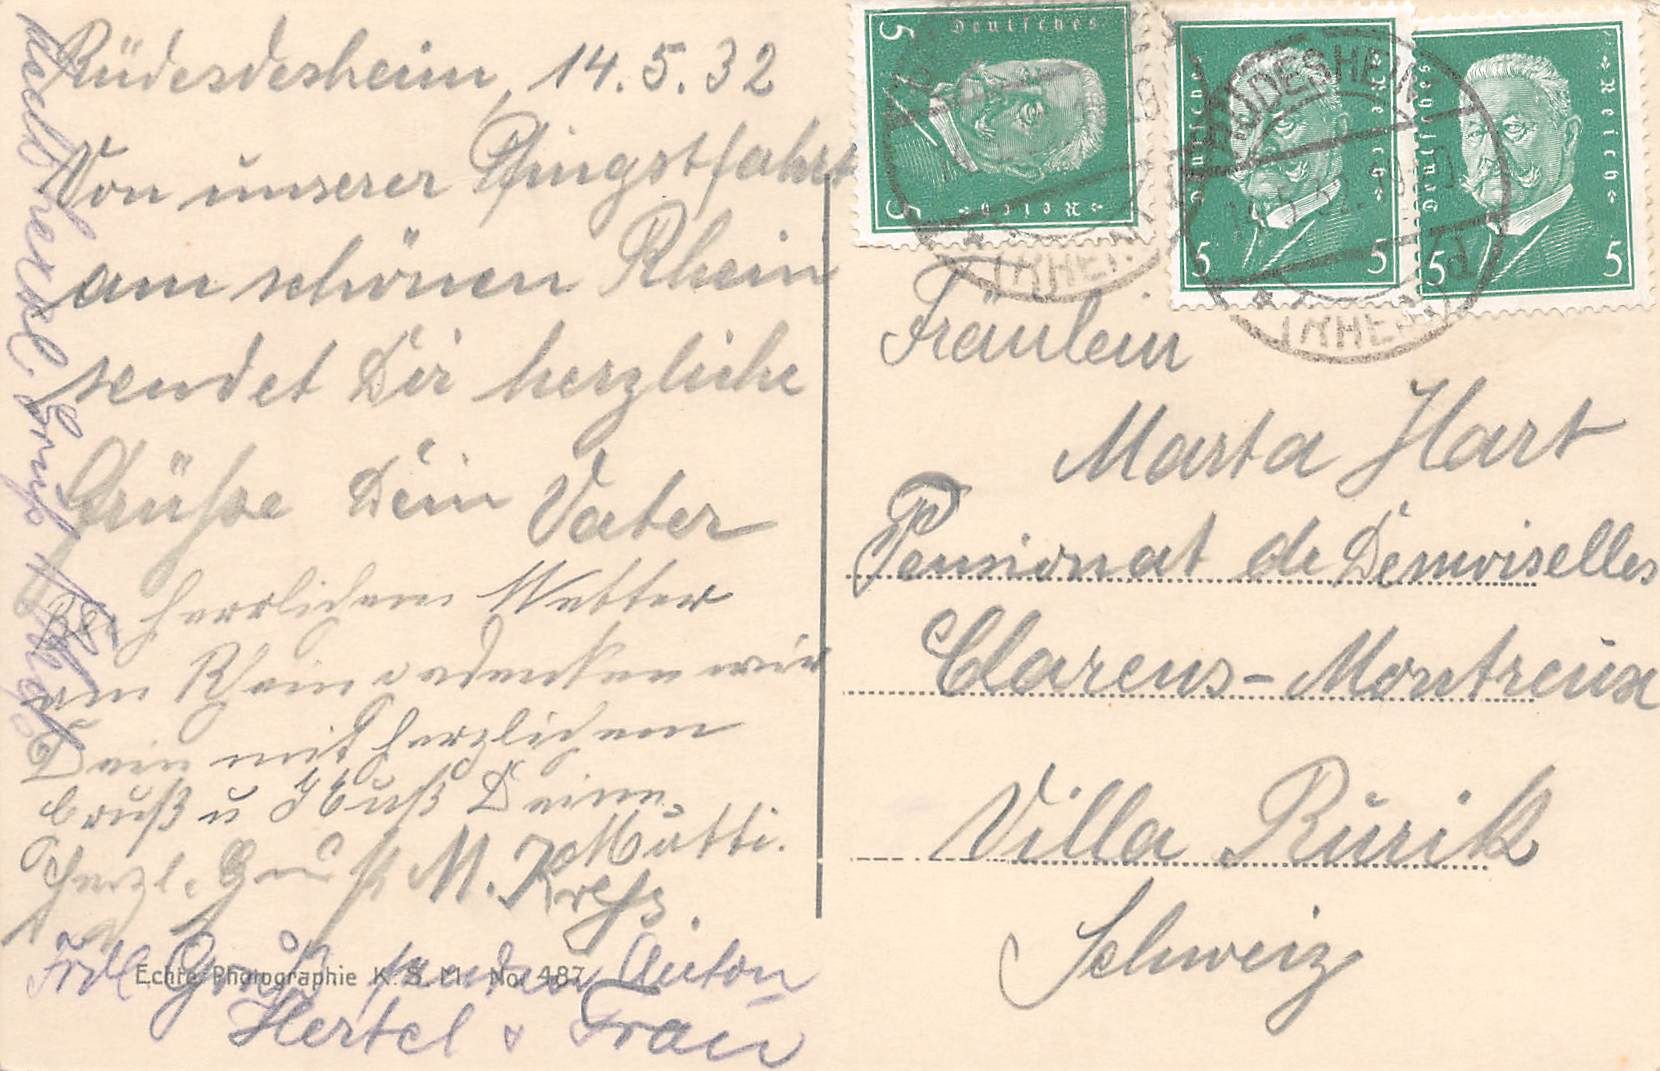 Rüdesdesheim, 14.5.32
Von unserer Pfingstfahrt
am schönen Rhein
sendet Dir herzliche
Grüsse Dein Vater
Bei herrlichem Wetter
am Rhein gedenken wir
Dein mit herzlichem
Gruß u Kuß Deine
Mutti.
Herzl. Gruß M. Kress.
Frdl Gruß senden Anton
Hertel u Frau
recht herzl Gruß
Echte Photographie K. S. M. No. 487
Deutsches Reich
5 5
Deutsches Reich
5 5
Deutsches Reich
5 5
RÜDESHEIM
(RHEIN)
RÜDESHEIM
(RHEIN)
Fräulein
Marta Hart
Pensionat de Demoiselles
Clarens-Montreux
Villa Rurik
Schweiz